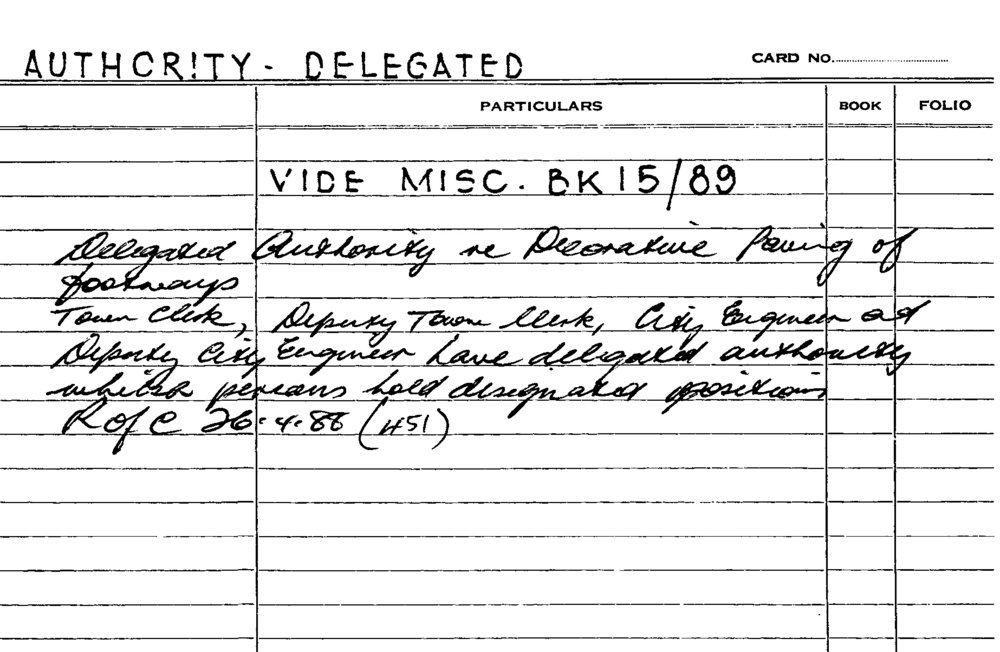 AUTHORITY - DELEGATED
CARD No.
PARTICULARS BOOK FOLIO
VIDE MISC. BK 15/89
Delegated Authority re Decorative Paving of
footways
Town Clerk, Deputy Town Clerk, City Engineer and
Deputy City Engineer have delegated authority
whilst persons hold designated positions
R of C 26.4.88 (H51)